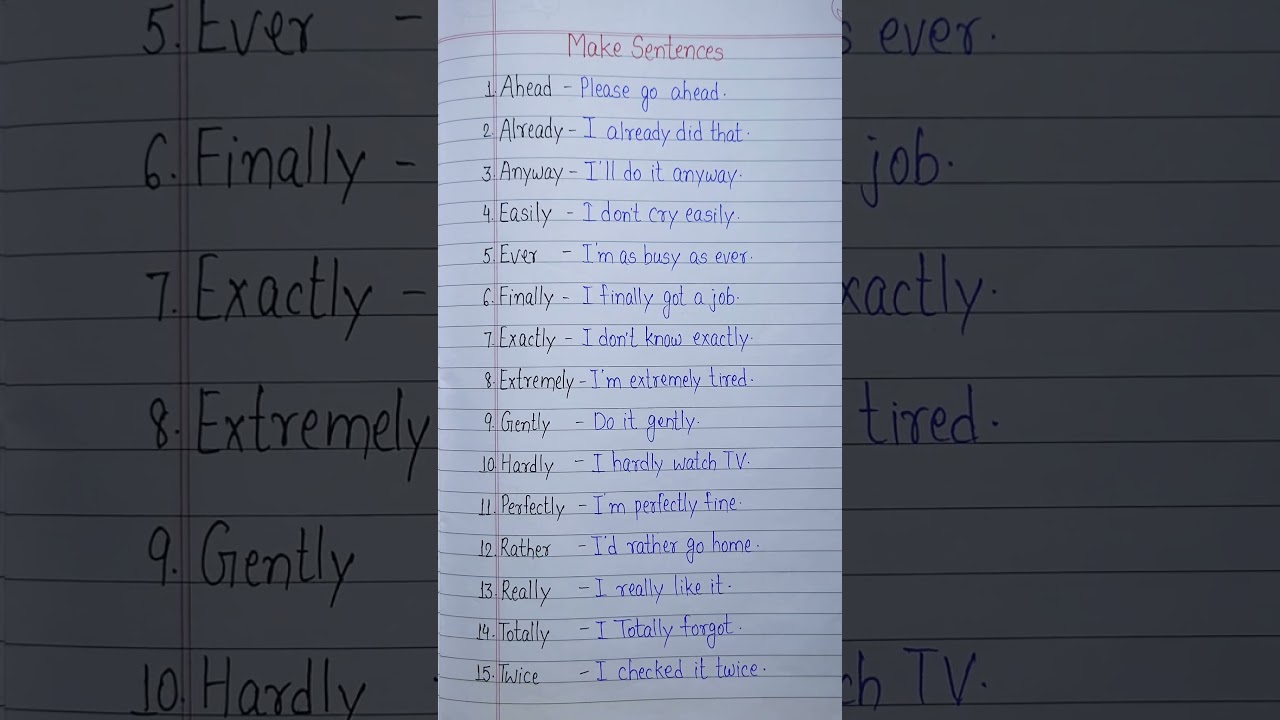 Make Sentences
1. Ahead - Please go ahead.
2. Already - I already did that.
3. Anyway - I'll do it anyway.
4. Easily - I don't cry easily.
5. Ever - I'm as busy as ever.
6. Finally - I finally got a job.
7. Exactly - I don't know exactly.
8. Extremely - I'm extremely tired.
9. Gently - Do it gently.
10. Hardly - I hardly watch TV.
11. Perfectly - I'm perfectly fine.
12. Rather - I'd rather go home.
13. Really - I really like it.
14. Totally - I Totally forgot.
15. Twice - I checked it twice.
5. Ever -
6. Finally -
7. Exactly -
8. Extremely
9. Gently
10. Hardly
s ever.
job.
xactly.
tired.
ch TV.